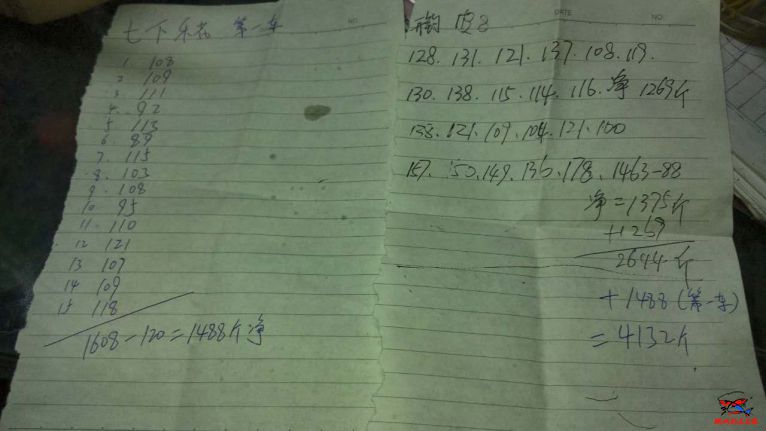 七下乐花 第一车
1 108
2 109
3 111
4 92
5 113
6 89
7 115
8 103
9 108
10 95
11 110
12 121
13 107
14 109
15 118
1608-120=1488斤净
NO.
DATE
NO.
128. 131. 121. 137. 108. 119.
130. 138. 115. 114. 116. 净 1269斤
138. 121. 109. 104. 121. 100
157. 150. 149. 136. 178. 1463-88
净=1375斤
+1269
2644斤
+1488(第一车)
=4132斤